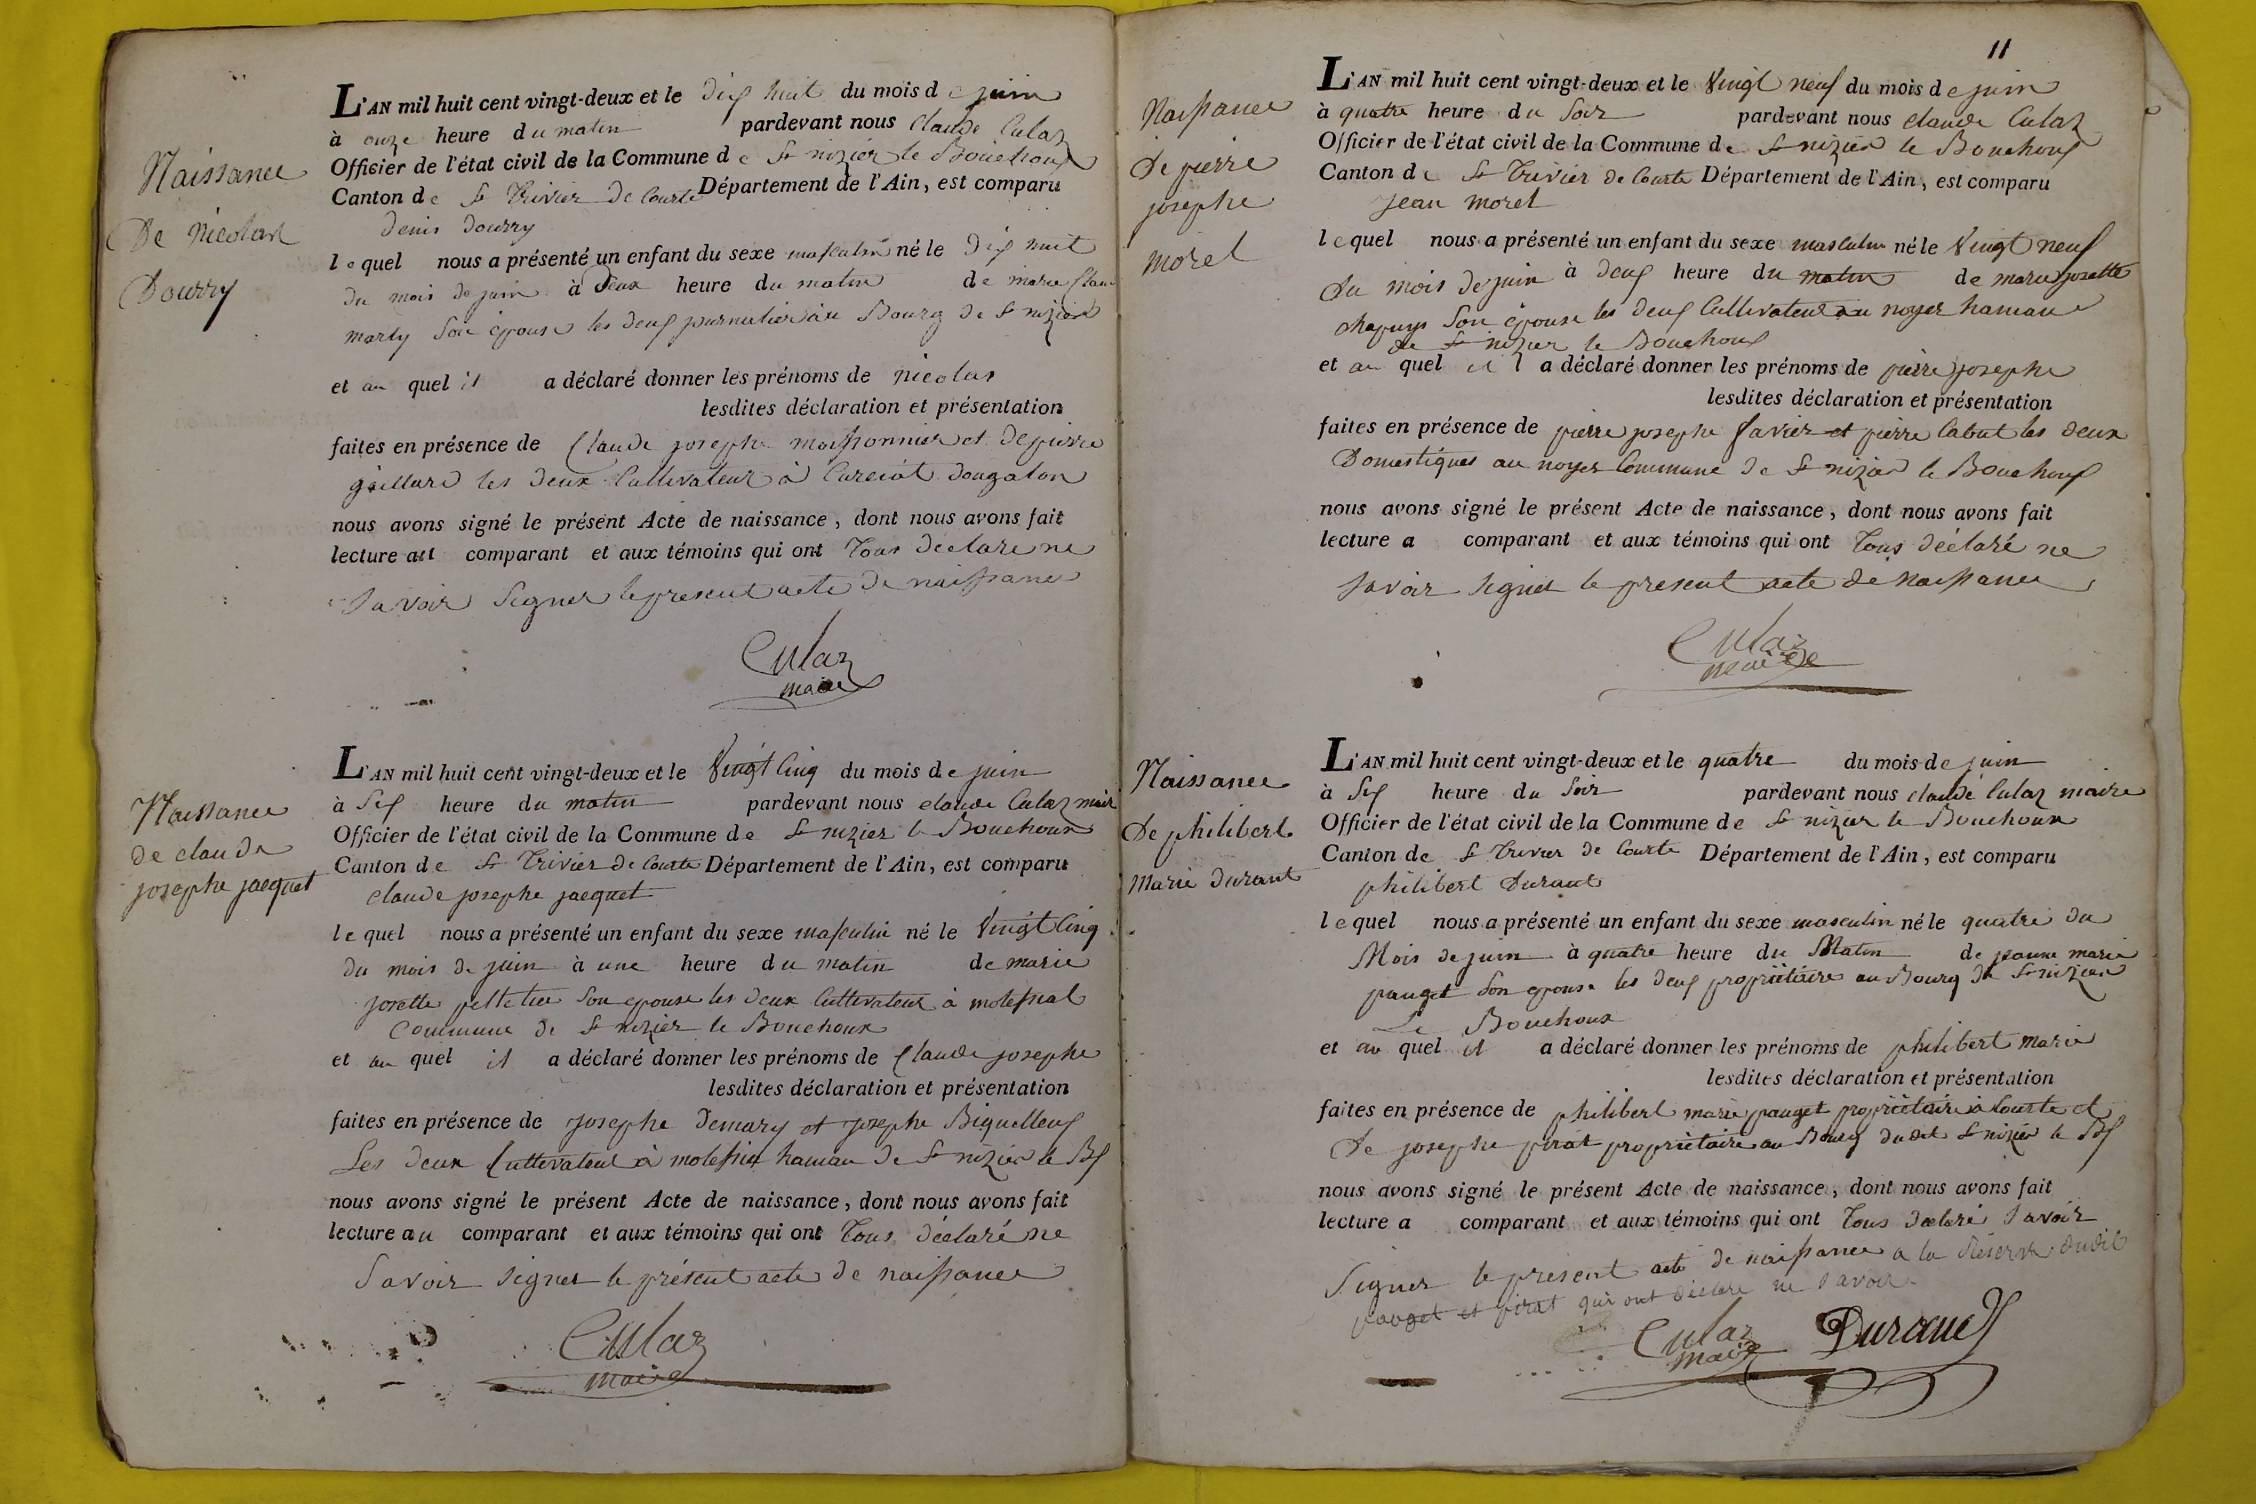 Naissance
De Nicolas
Dourry
L'AN mil huit cent vingt-deux et le dix huit du mois de juin
à onze heure du matin pardevant nous Claude Culaz
Officier de l'état civil de la Commune de St nizier le Bouchoux
Canton de St Trivier de Courte Département de l'Ain, est comparu
denis dourry
lequel nous a présenté un enfant du sexe masculin né le dix huit
du mois de juin à deux heure du matin de marie
marty Son épouse les deux journalier au Bourg de St nizier
et au quel il a déclaré donner les prénoms de nicolas
lesdites déclaration et présentation
faites en présence de Claude josephe moissonnier et de pierre
gaillard les deux Cultivateur à Curciat dongalon
nous avons signé le présent Acte de naissance, dont nous avons fait
lecture au comparant et aux témoins qui ont Tous déclare ne
Savoir Signer le present acte de naissance
Culaz
maire
Naissance
de claude
josephe jacquet
L'AN mil huit cent vingt-deux et le Vingt Cinq du mois de juin
à Six heure du matin pardevant nous claude Culaz maire
Officier de l'état civil de la Commune de St nizier le Bouchoux
Canton de St Trivier de Courte Département de l'Ain, est comparu
claude josephe jacquet
lequel nous a présenté un enfant du sexe masculin né le Vingt Cinq
du mois de juin à une heure du matin de marie
josette pelletier Son epouse les deux Cultivateur à molessiat
Commune de St nizier le Bouchoux
et au quel il a déclaré donner les prénoms de Claude josephe
lesdites déclaration et présentation
faites en présence de josephe Demary et josephe Biguelleux
Les deux Cultivateur à molessia hamau de St nizier le Bx
nous avons signé le présent Acte de naissance, dont nous avons fait
lecture au comparant et aux témoins qui ont Tous déclaré ne
Savoir Signer le présent acte de naissance
Culaz
maire
11
Naissance
De pierre
josephe
morel
L'AN mil huit cent vingt-deux et le Vingt neuf du mois de juin
à quatre heure du Soir pardevant nous claude Culaz
Officier de l'état civil de la Commune de St nizier le Bouchoux
Canton de St Trivier de Courte Département de l'Ain, est comparu
jean morel
lequel nous a présenté un enfant du sexe masculin né le Vingt neuf
du mois de juin à deux heure du matin de marie josette
chapuys Son épouse les deux Cultivateur au noyer hamau
de St nizier le Bouchoux
et au quel il a déclaré donner les prénoms de pierre josephe
lesdites déclaration et présentation
faites en présence de pierre josephe favier et pierre Cabut les deux
Domestiques au noyer Commune de St nizier le Bouchoux
nous avons signé le présent Acte de naissance, dont nous avons fait
lecture a comparant et aux témoins qui ont Tous déclaré ne
Savoir Signer le present acte de naissance
Culaz
maire
Naissance
De philibert
Marie durant
L'AN mil huit cent vingt-deux et le quatre du mois de juin
à Six heure du Soir pardevant nous claude Culaz maire
Officier de l'état civil de la Commune de St nizier le Bouchoux
Canton de St Trivier de Courte Département de l'Ain, est comparu
philibert Durant
lequel nous a présenté un enfant du sexe masculin né le quatre du
Mois de juin à quatre heure du Matin de jeanne marie
pauget Son epouse les deux propriétaire au Bourg de St nizier
Le Bouchoux
et au quel il a déclaré donner les prénoms de philibert marie
lesdites déclaration et présentation
faites en présence de philibert marie pauget propriétaire à Courte et
De josephe pirat propriétaire au Bourg dudit St nizier le Bx
nous avons signé le présent Acte de naissance, dont nous avons fait
lecture a comparant et aux témoins qui ont Tous declaré Savoir
Signer le present acte de naissance a la Réserve dudit
pauget et pirat qui ont déclaré ne Savoir
Culaz
maire
Durand